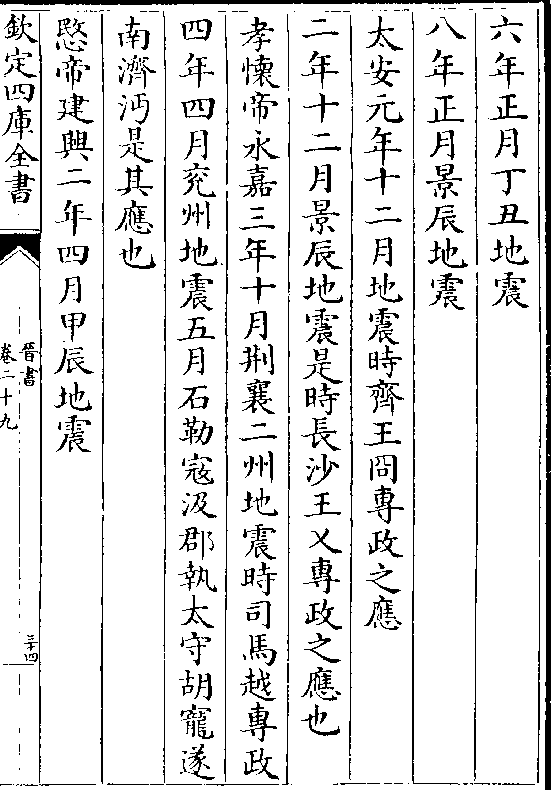 六年正月丁丑地震
八年正月景辰地震
太安元年十二月地震時齊王冏專政之應
二年十二月景辰地震是時長沙王乂專政之應也
孝懷帝永嘉三年十月荆襄二州地震時司馬越專政
四年四月兖州地震五月石勒寇汲郡執太守胡寵遂
南濟沔是其應也
愍帝建興二年四月甲辰地震
欽定四庫全書
晉書
卷二十九
三十四